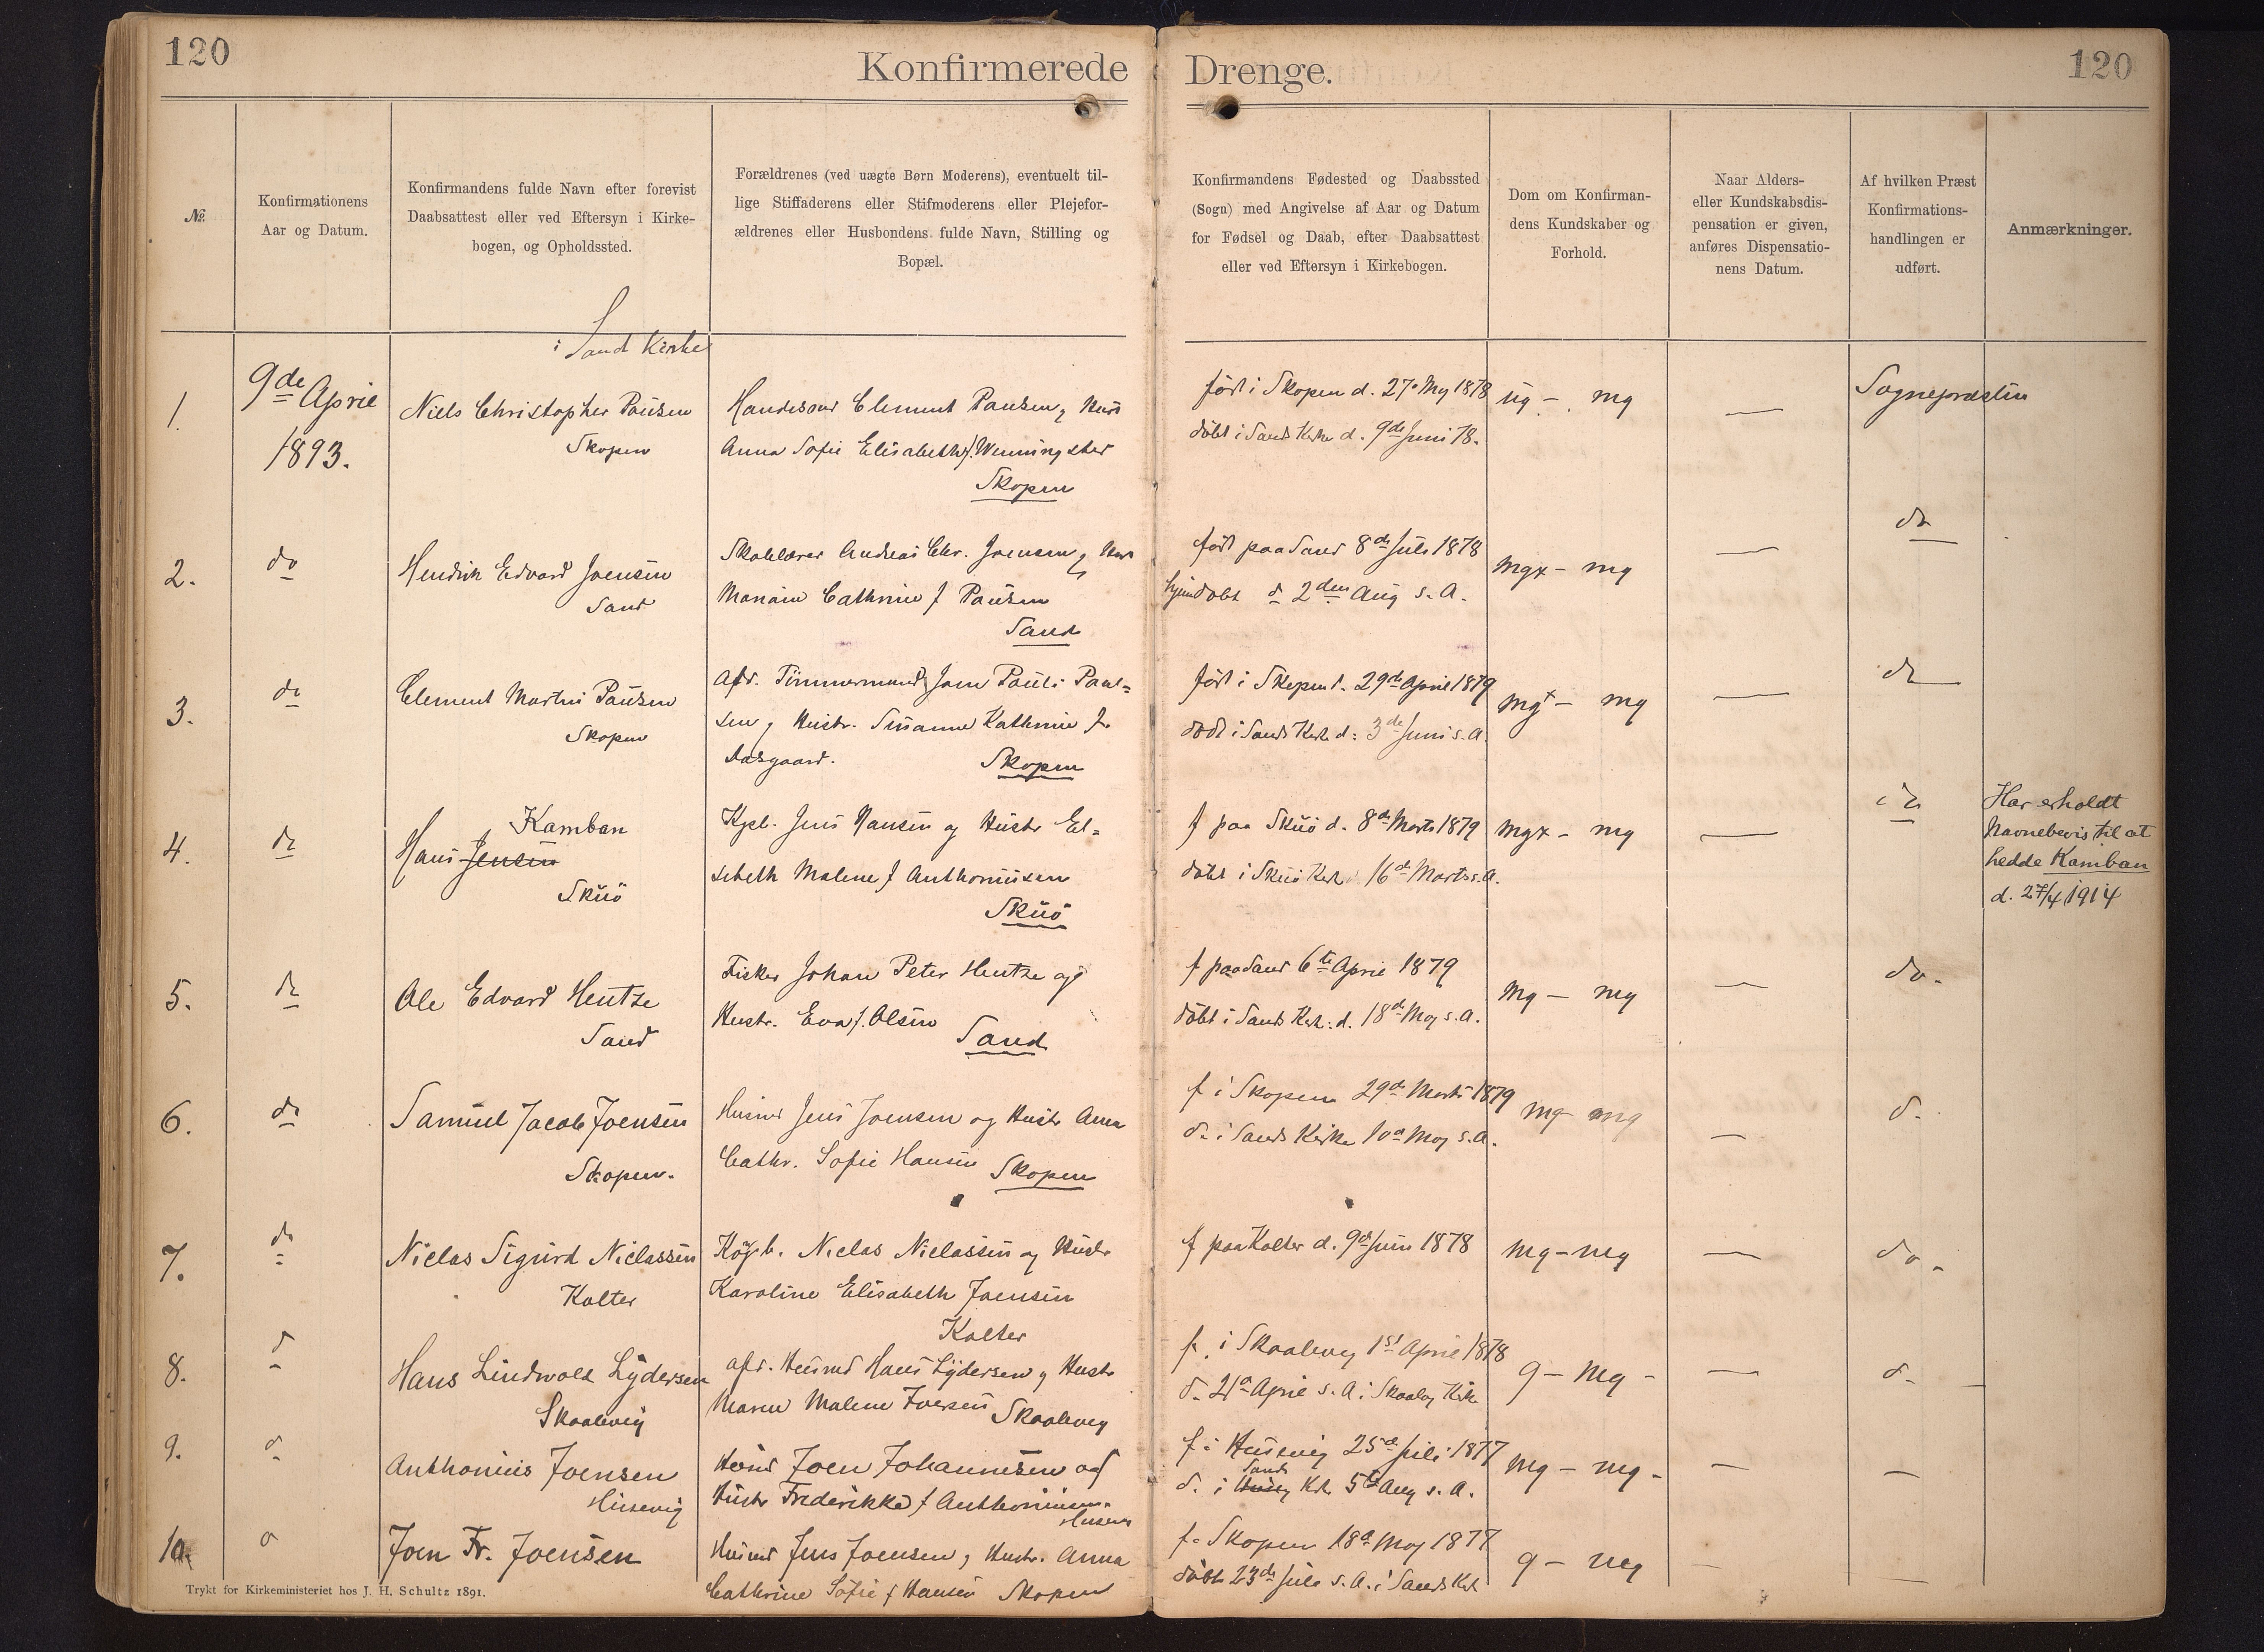 120
Konfirmerede
Drenge.
120
№
Konfirmationens
Aar og Datum.
Konfirmandens fulde Navn efter forevist
Daabsattest eller ved Eftersyn i Kirke-
bogen, og Opholdssted.
Forældrenes (ved uægte Børn Moderens), eventuelt til-
lige Stiffaderens eller Stifmoderens eller Plejefor-
ældrenes eller Husbondens fulde Navn, Stilling og
Bopæl.
Konfirmandens Fødested og Daabssted
(Sogn) med Angivelse af Aar og Datum
for Fødsel og Daab, efter Daabsattest
eller ved Eftersyn i Kirkebogen.
Dom om Konfirman-
dens Kundskaber og
Forhold.
Naar Alders-
eller Kundskabsdis-
pensation er given,
anføres Dispensatio-
nens Datum.
Af hvilken Præst
Konfirmations-
handlingen er
udført.
Anmærkninger.
i Sand Kirke
1.
9de April
1893.
Niels Christopher Poulsen
Skopen
Clement Poulsen
Anna Sofie Elisabeth f. Wenningsted
Skopen
født i Skopen d. 27. Maj 1878
døbt i Sands Kirke d. 9de Juni 78.
ug - mg
—
Sognepræsten
2.
do
Hendrik Edvard Joensen
Sand
Skolelærer Andreas Chr. Joensen og Hustr
Cathrine f Poulsen
Sand
født paa Sand 8de Juli 1878
hjemdøbt d 2den Aug s. A.
mgx - mg
—
do
3.
do
Clement Martin Poulsen
Skopen
Afd. Tømmermand Joen Pauli Poul=
sen og Hustr. Susanne Kathrine f.
Dalsgaard.
Skopen
født i Skopen d. 29de April 1879
døbt i Sands Kirke d: 3de Juni s. A.
mg+ - mg
—
do
4.
do
Kamban
Hans Jensen
Skuö
Jens Hansen og Hustr El=
sebeth Malene f Anthoniusen
Skuö
f paa Skuö d. 8de Marts 1879
døbt i Skuö Kirke 16de Marts s. A.
mgx - mg
—
do
Har erholdt
Navnebevis til at
hedde Kamban
d. 27/4 1914
5.
do
Ole Edvard Hentze
Sand
Fisker Johan Peter Hentze og
Hustr. Eva f. Olsen
Sand
f paa Sand 6te April 1879
døbt i Sands Kirk: d. 18de Maj s. A.
mg - mg
—
do.
6.
do
Samuel Jacob Joensen
Skopen.
Husmd Jens Joensen og Hustr Anna
Cathr. Sofie Hansen Skopen
f i Skopen 29de Marts 1879
d. i Sands Kirke 10de Maj s. A.
mg mg
—
d.
7.
do
Niclas Sigurd Niclassen
Kolter
Niclas Niclassen og Hustr
Karoline Elisabeth Joensen
Kolter
f paa Kolter d. 9de Juni 1878
mg - mg
—
do.
8.
d
Hans Lindwold Lydersen
Skaalevig
afd. Husmd Hans Lydersen og Hustr
Maren Malene Iversen Skaalevig
f. i Skaalevig 1st April 1878
d. 21de April s. A. i Skaalevig Kirke
g - mg -
—
d.
9.
d.
Anthonius Joensen
Husevig
Husmd Joen Johannesen og
Hustr Frederikke f Anthoniusen.
Husevig
f i Husevig 25de Juli 1877
Sands
d. i Husevig Kirke 5te Aug s. A.
mg - mg -
—
—
10.
d
Joen Fr. Joensen
Husmd Jens Joensen og Hustr. Anna
Cathrine Sofie f Hansen Skopen
f. Skopen 18de Maj 1877
døbt 23de Juli s. A. i Sands Kirke
g - mg
—
—
Trykt for Kirkeministeriet hos J. H. Schultz 1891.